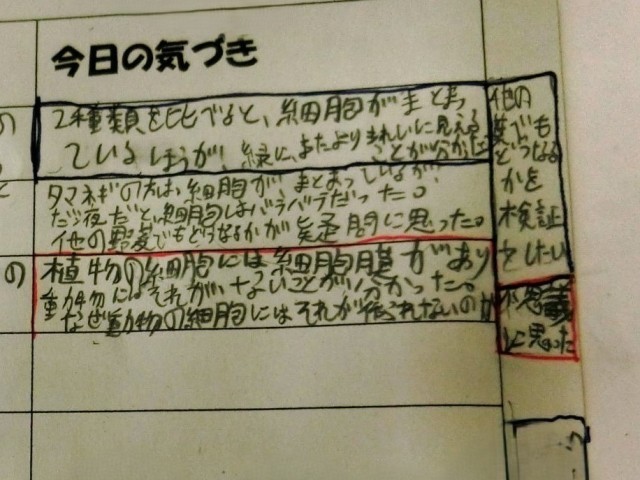 今日の気づき
2種類を比べると、細胞がまとまっ
ているほうが、緑に、またよりきれいに見える
ことが分かった
タマネギの方は細胞が、まとまっているが、
だ液だと細胞はバラバラだった。
他の野菜でもどうなるかが疑問に思った。
他の
菜でも
どうなる
かを
検証
をしたい
の
植物の細胞には細胞膜があり
動物にはそれがいなことが分かった。
なぜ動物の細胞にはそれが作られないのか
不思議
に思った